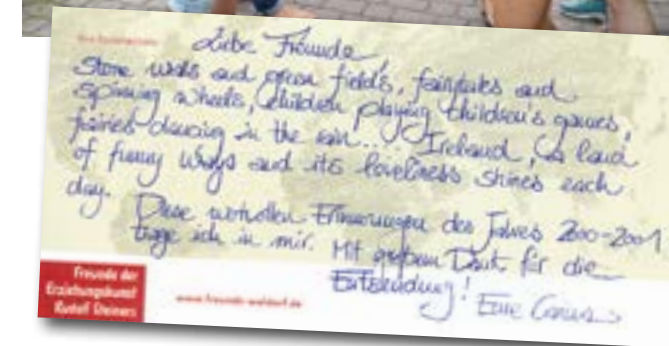 Liebe Freunde,
Stone walls and green fields, fairytales and
spinning wheels, children playing children's games,
fairies dancing in the rain... Ireland, a land
of funny ways and its loveliness shines each
day. Diese wertvollen Erinnerungen des Jahres 2000-2001
trage ich in mir. Mit großem Dank für die
Entsendung! Eure
Freunde der
Erziehungskunst
Rudolf Steiners
www.freunde-waldorf.de